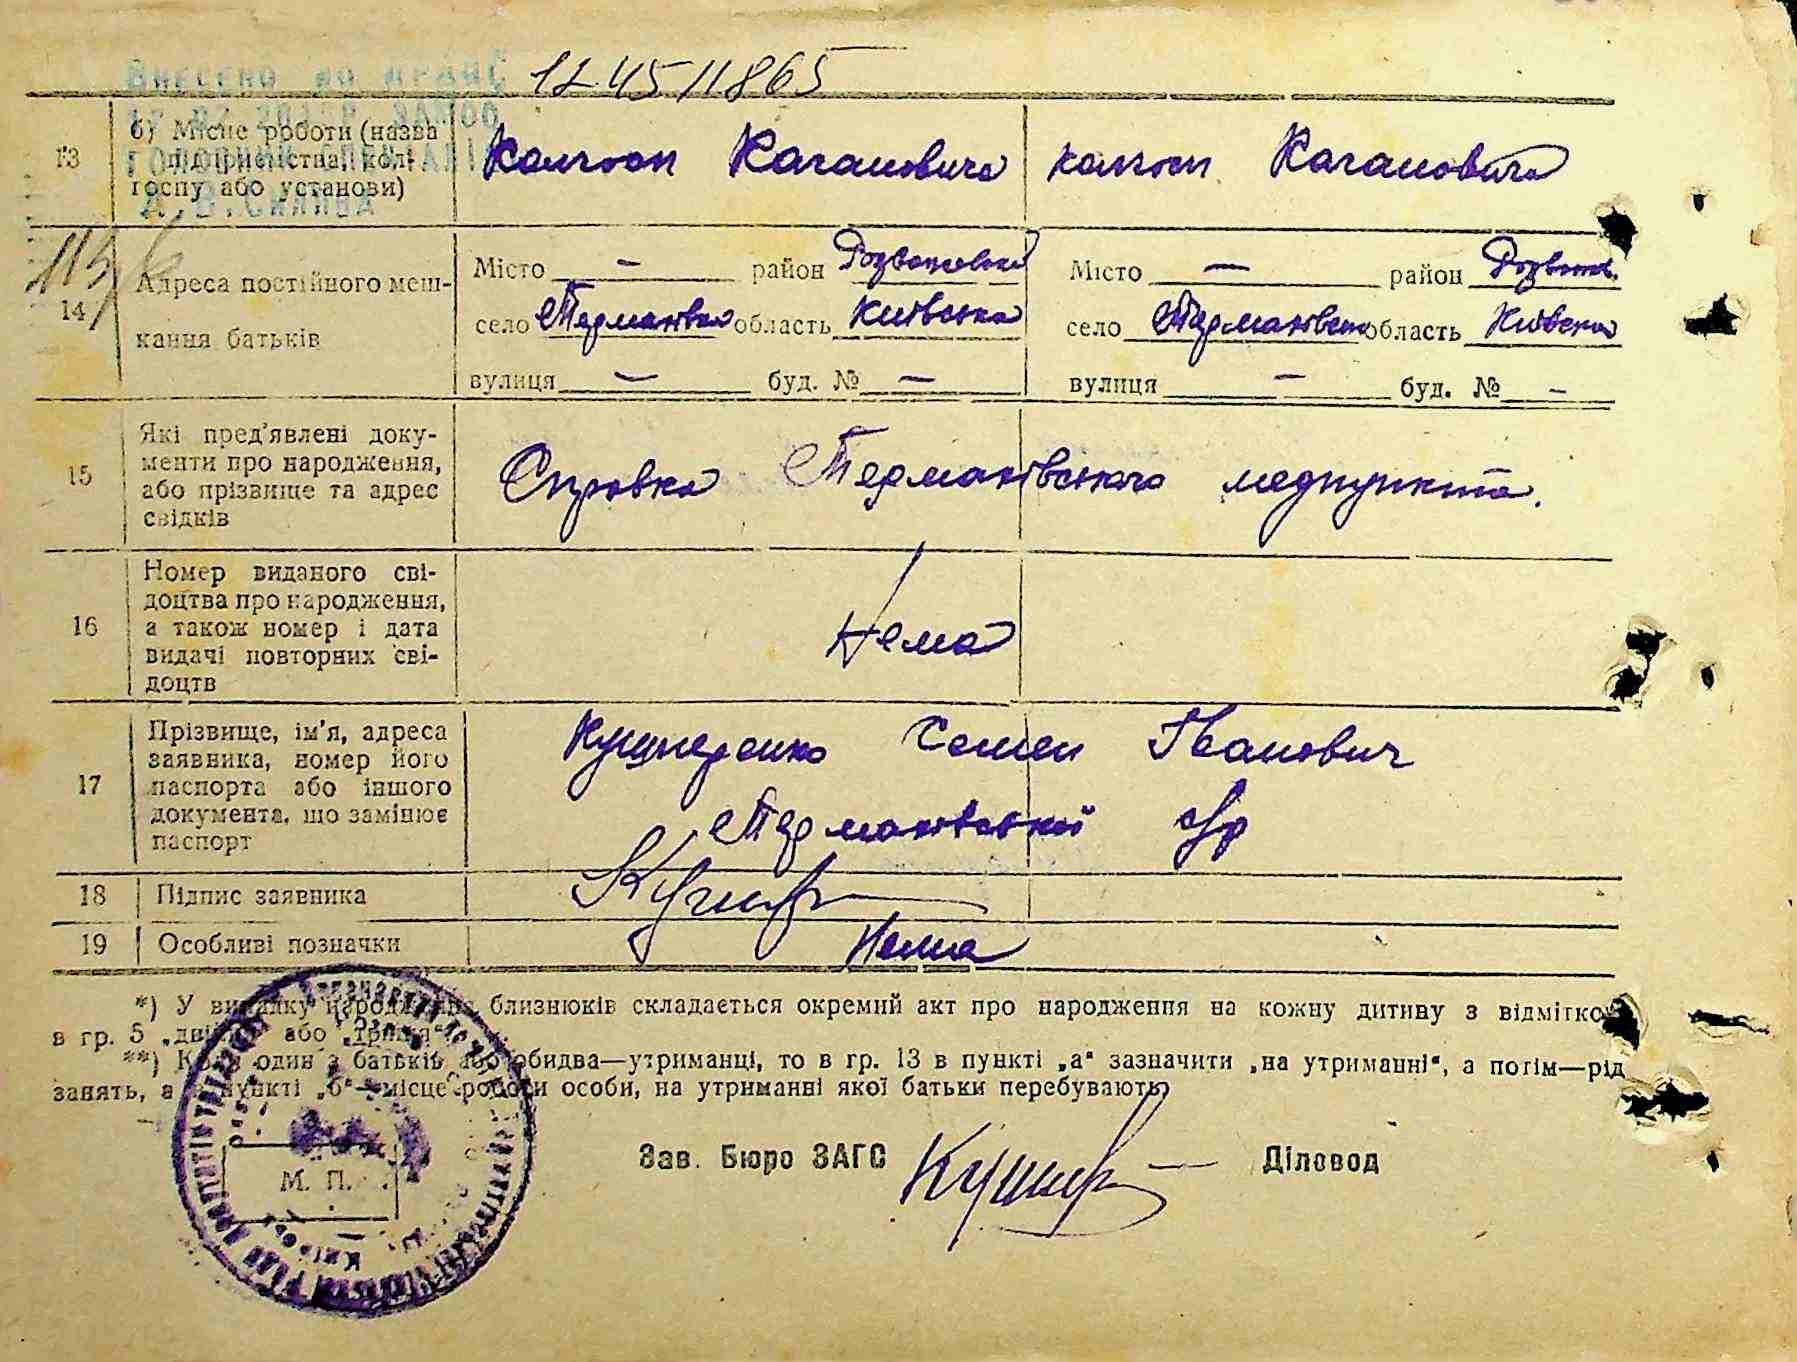 Внесено до ДРАЦС 124511865
13 б) Місце роботи (назва
підприємства, кол-
госпу або установи)
Колгосп Кагановича колгосп Кагановича
А.В.
14 Адреса постійного меш-
кання батьків
Місто — район Розважевский Місто — район Розваж.
село Термахівка область Київська село Термахівка область Київска
вулиця — буд. № — вулиця — буд. № —
15 Які пред'явлені доку-
менти про народження,
або прізвище та адрес
свідків
Справка Термахівського медпункта.
16 Номер виданого сві-
доцтва про народження,
а також номер і дата
видачі повторних сві-
доцтв
Нема
17 Прізвище, ім'я, адреса
заявника, номер його
паспорта або іншого
документа, що замінює
паспорт
Кушнеренко Семен Іванович
Термахівської с/р
18 Підпис заявника
19 Особливі позначки Нема
*) У випадку народження близнюків складається окремий акт про народження на кожну дитину з відміткою
в гр. 5 „двійня“ або „трійня“.
**) Коли один з батьків або обидва—утриманці, то в гр. 13 в пункті „а“ зазначити „на утриманні“, а потім—рід
занять, а в пункті „б“—місце роботи особи, на утриманні якої батьки перебувають.
Зав. Бюро ЗАГС Діловод
М. П.